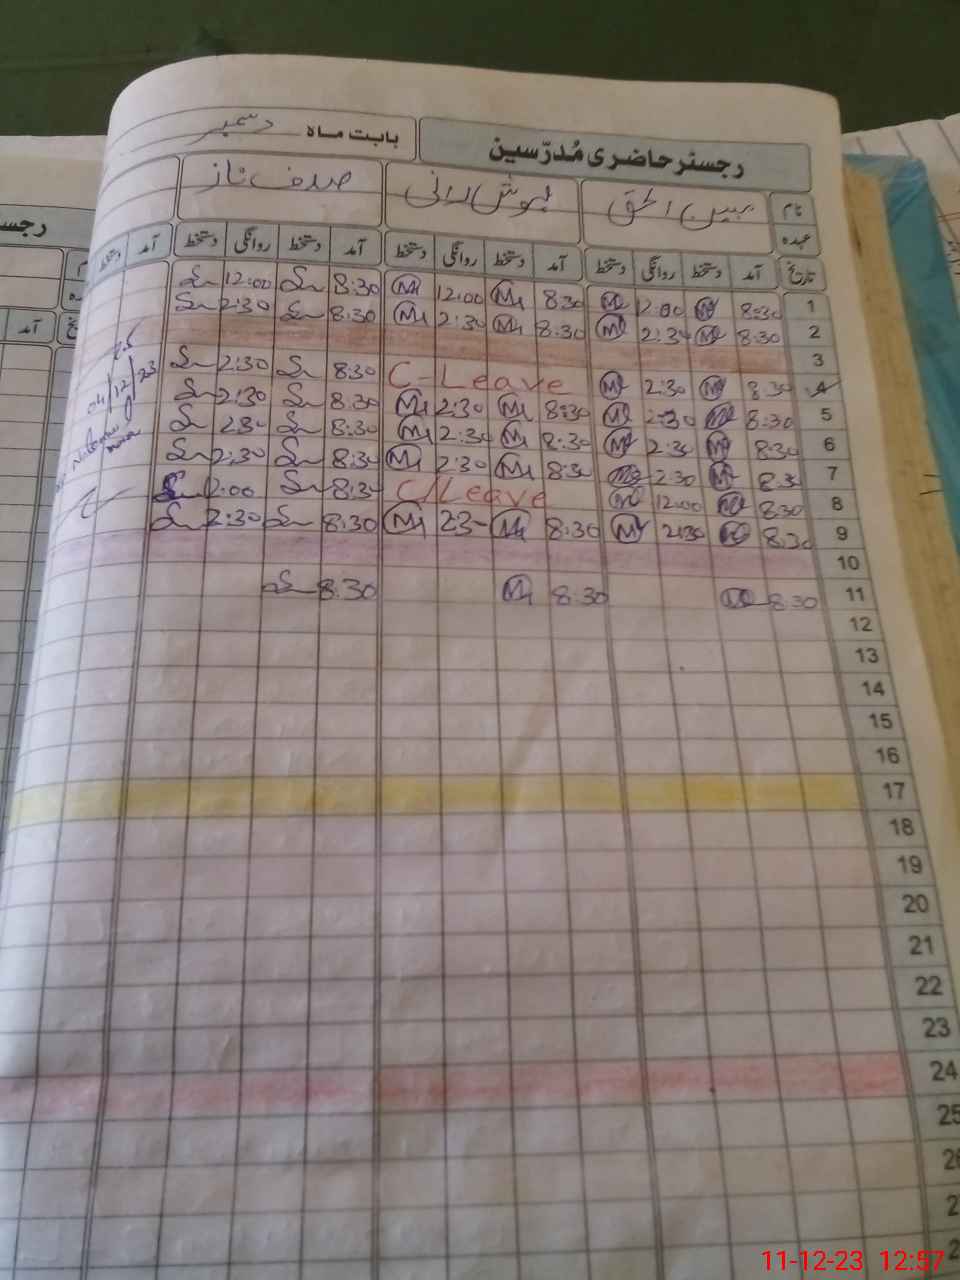 رجسٹر حاضری مُدرّسین بابت ماہ دسمبر
نام مبین الحق مہوش رانی صدف ناز
عہدہ
تاریخ آمد دستخط روانگی دستخط آمد دستخط روانگی دستخط آمد دستخط روانگی دستخط آمد دستخط
1 8:30 12:00 8:30 12:00 8:30 12:00
2 8:30 2:30 8:30 2:30 8:30 2:30
3
4 8:30 2:30 C-Leave 8:30 2:30
5 8:30 2:30 8:30 2:30 8:30 2:30
6 8:30 2:30 8:30 2:30 8:30 2:30
7 8:30 2:30 8:30 2:30 8:30 2:30
8 8:30 12:00 C/Leave 8:30 12:00
9 8:30 2:30 8:30 23- 8:30 2:30
10
11 8:30 8:30 8:30
12
13
14
15
16
17
18
19
20
21
22
23
24
25
04/12/23
رجس
آمد
11-12-23 12:57